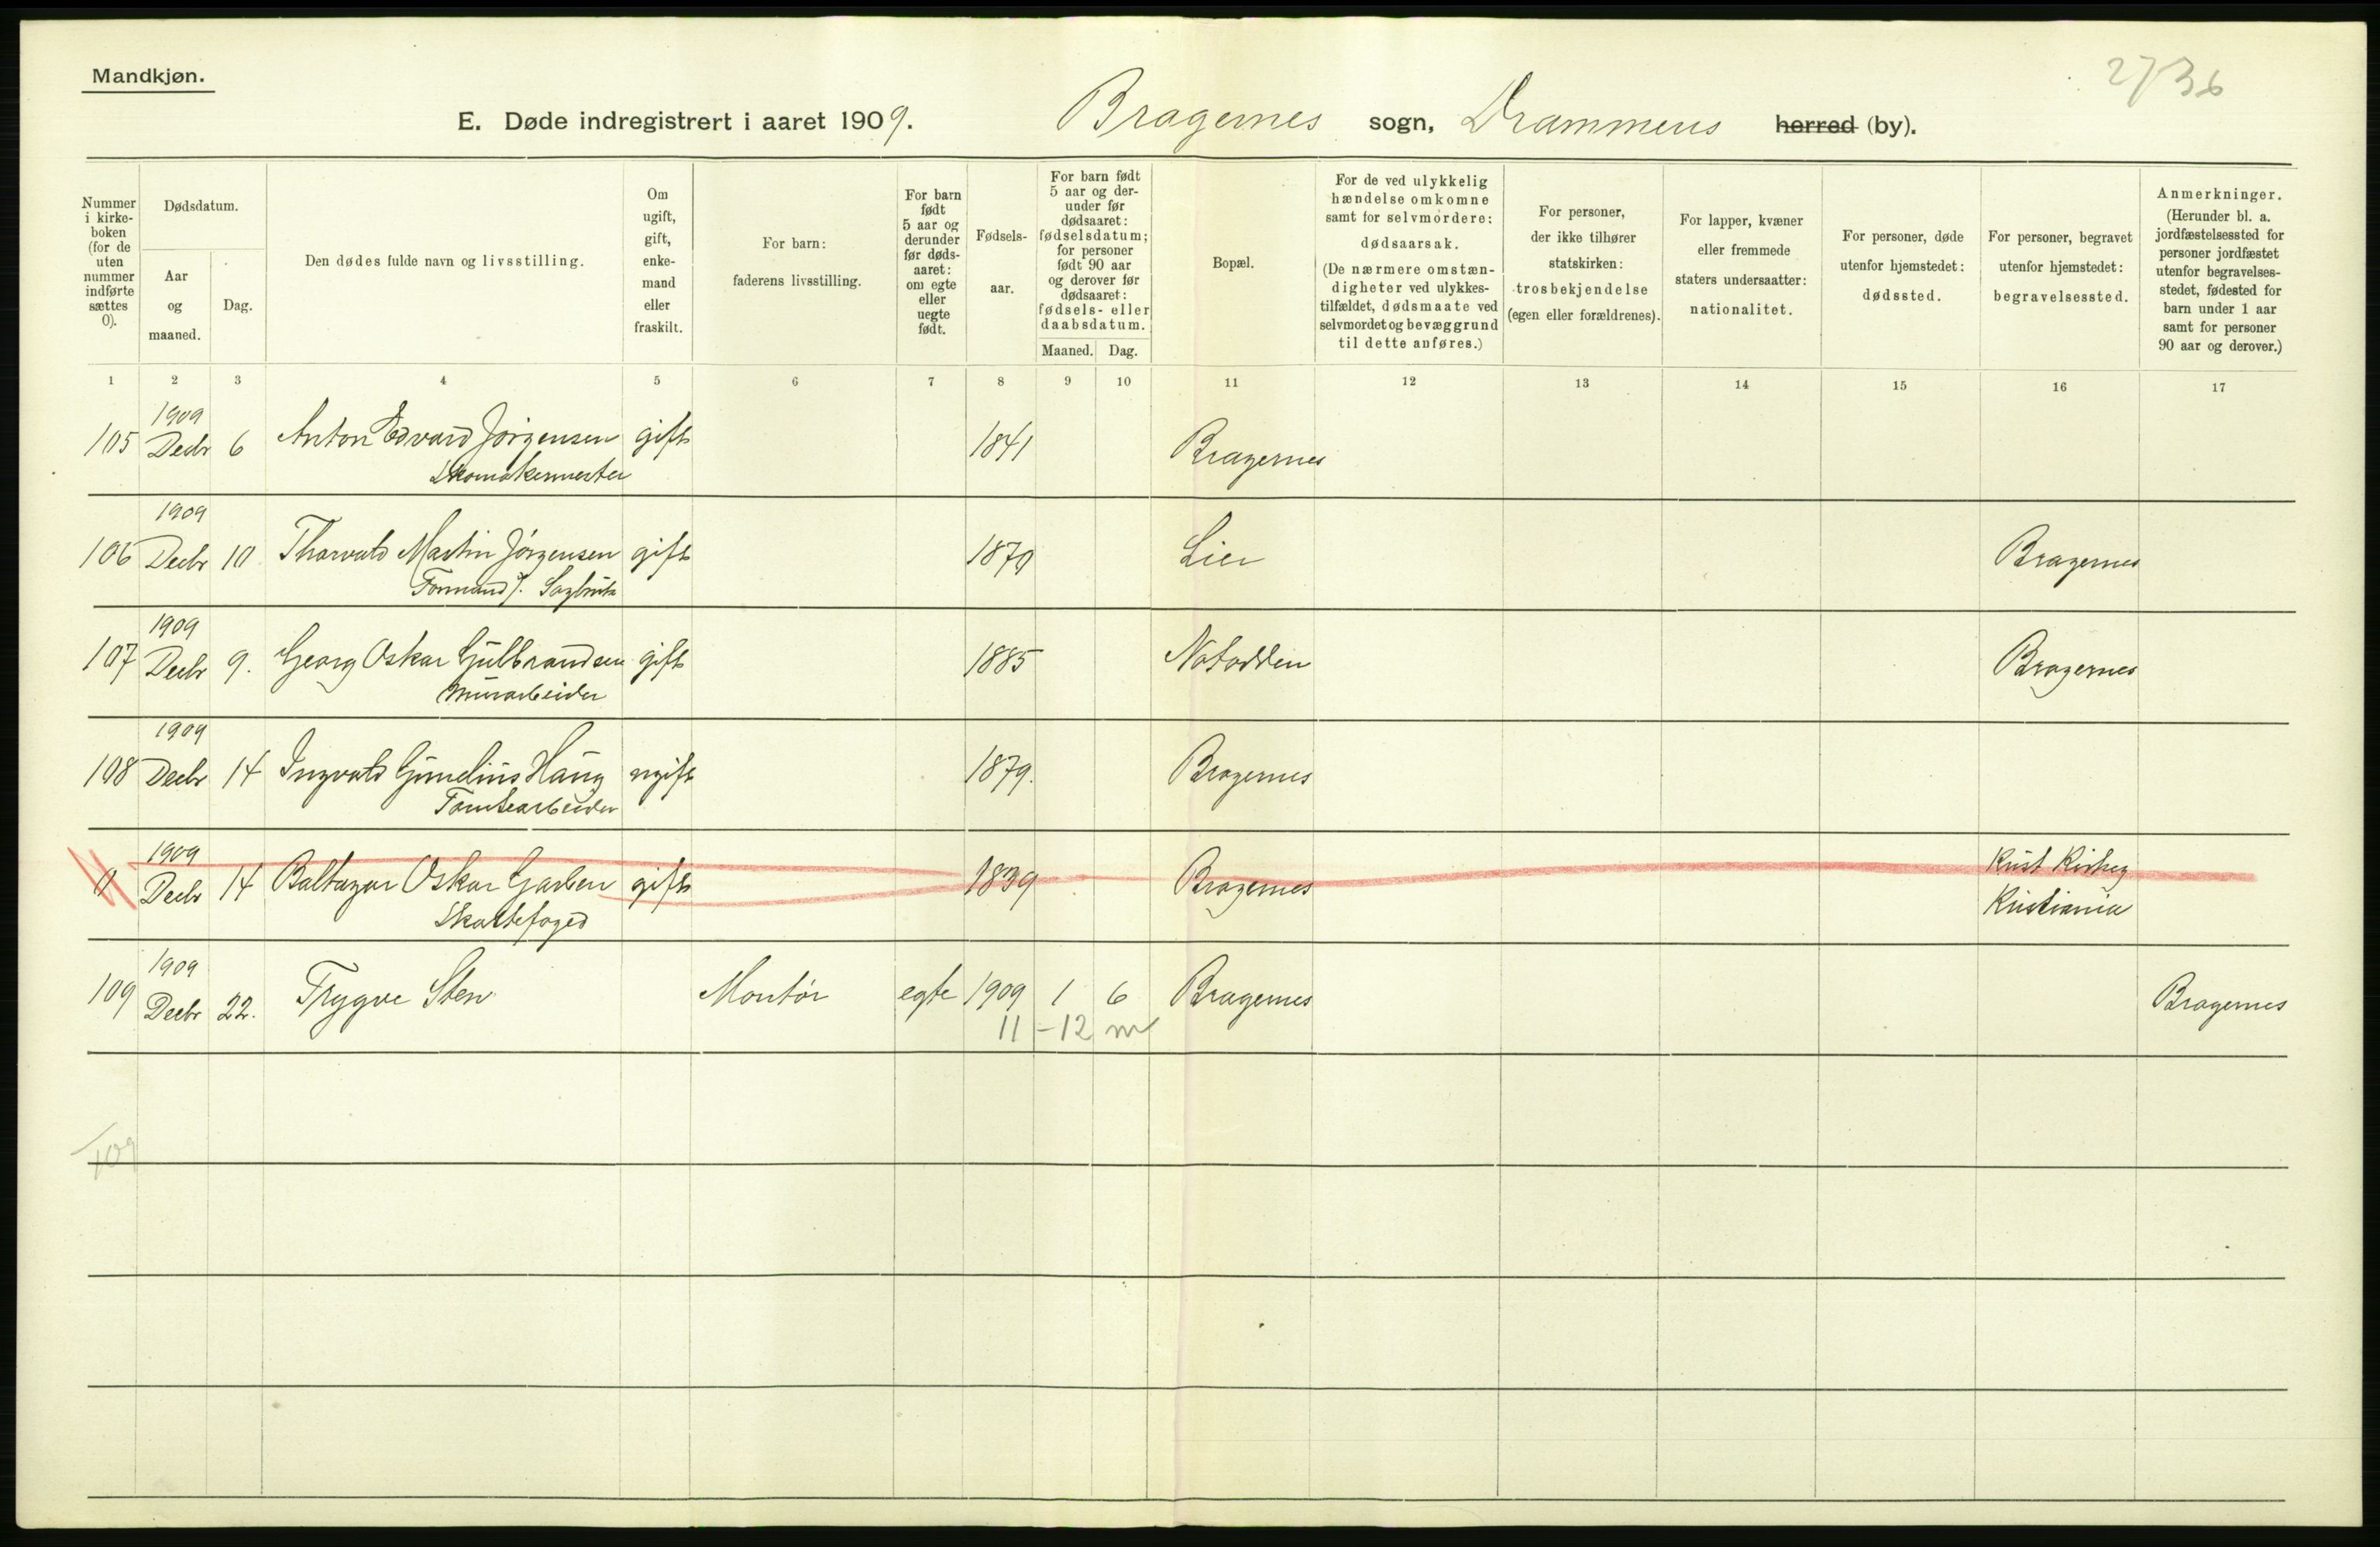 Mandkjøn.
2736
E. Døde indregistrert i aaret 1909. Bragernes sogn, Drammens herred (by).
Nummer i kirke-boken (for de uten nummer indførte sættes 0).
Dødsdatum.
Aar og maaned.
Dag.
Den dødes fulde navn og livsstilling.
Om ugift, gift, enke-mand eller fraskilt.
For barn: faderens livsstilling.
For barn født 5 aar og derunder før døds-aaret: om egte eller uegte født.
Fødsels-aar.
For barn født 5 aar og der-under før dødsaaret: fødselsdatum; for personer født 90 aar og derover før dødsaaret: fødsels- eller daabsdatum.
Maaned. Dag.
Bopæl.
For de ved ulykkelig hændelse omkomne samt for selvmordere: dødsaarsak. (De nærmere omstæn-digheter ved ulykkes-tilfældet, dødsmaate ved selvmordet og bevæggrund til dette anføres.)
For personer, der ikke tilhører statskirken: trosbekjendelse (egen eller forældrenes).
For lapper, kvæner eller fremmede staters undersaatter: nationalitet.
For personer, døde utenfor hjemstedet: dødssted.
For personer, begravet utenfor hjemstedet: begravelsessted.
Anmerkninger. (Herunder bl. a. jordfæstelsessted for personer jordfæstet utenfor begravelses-stedet, fødested for barn under 1 aar samt for personer 90 aar og derover.)
1 2 3 4 5 6 7 8 9 10 11 12 13 14 15 16 17
1909
105 Decbr 6 Anton Edvard Jørgensen gift 1841 Bragernes
Skomakermester
1909
106 Decbr 10 Thorvald Martin Jørgensen gift 1870 Lier Bragernes
Formand v. Sagbruk
1909
107 Decbr 9. Georg Oskar Gulbrandsen gift 1885 Notodden Bragernes
Murarbeider
1909
108 Decbr 14 Ingvald Gunelius Haug ugift 1879. Bragernes
Tomtearbeider
1909
0 Decbr 14 Baltazar Oskar Garben gift 1839 Bragernes Krist Kirkeg
Skattefoged Kristiania
1909
109 Decbr 22. Trygve Sten Montør egte 1909 1 6 Bragernes Bragernes
11-12 m
109